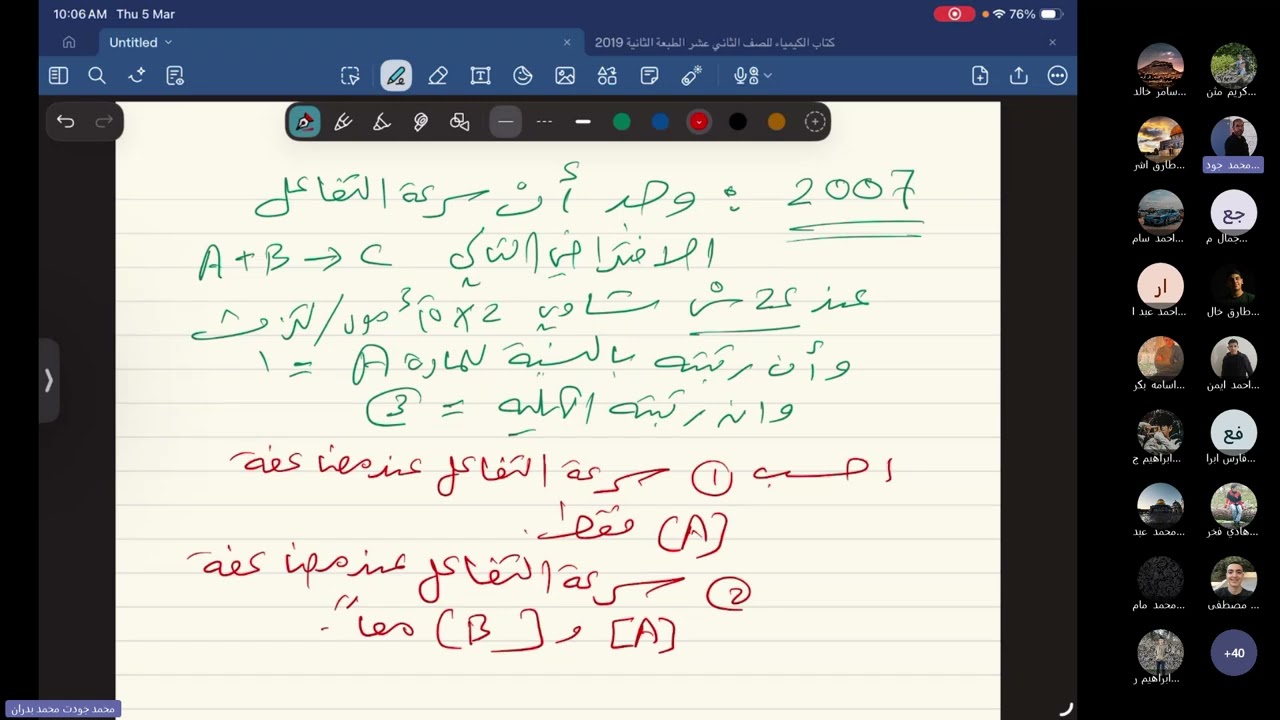 10:06 AM Thu 5 Mar
76%
Untitled
كتاب الكيمياء للصف الثاني عشر الطبعة الثانية 2019
2007 : وجد أن سرعة التفاعل
الافتراضي التالي A + B → C
عند 25 س تساوي 2 × 10⁻³ مول/لتر.ث
وأن رتبته بالنسبة للمادة A = ١
وان رتبته الكلية = 3
احسب ① سرعة التفاعل عند مضاعفة
[A] فقط.
② سرعة التفاعل عند مضاعفة
[A] و [B] معاً.
سامر خالد...
كريم مثن...
طارق اشر...
محمد جود...
احمد سام...
جع
جمال م...
ار
احمد عبد ا...
طارق خال...
اسامه بكر...
احمد ايمن...
ابراهيم ج...
فع
فارس ابرا...
محمد عبد...
هادي فخر...
محمد مام...
مصطفى...
ابراهيم ر...
+40
محمد جودت محمد بدران